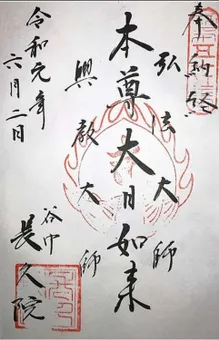 奉納経
弘法大師
本尊大日如来
興教大師
令和元年
六月二日
谷中
長久院